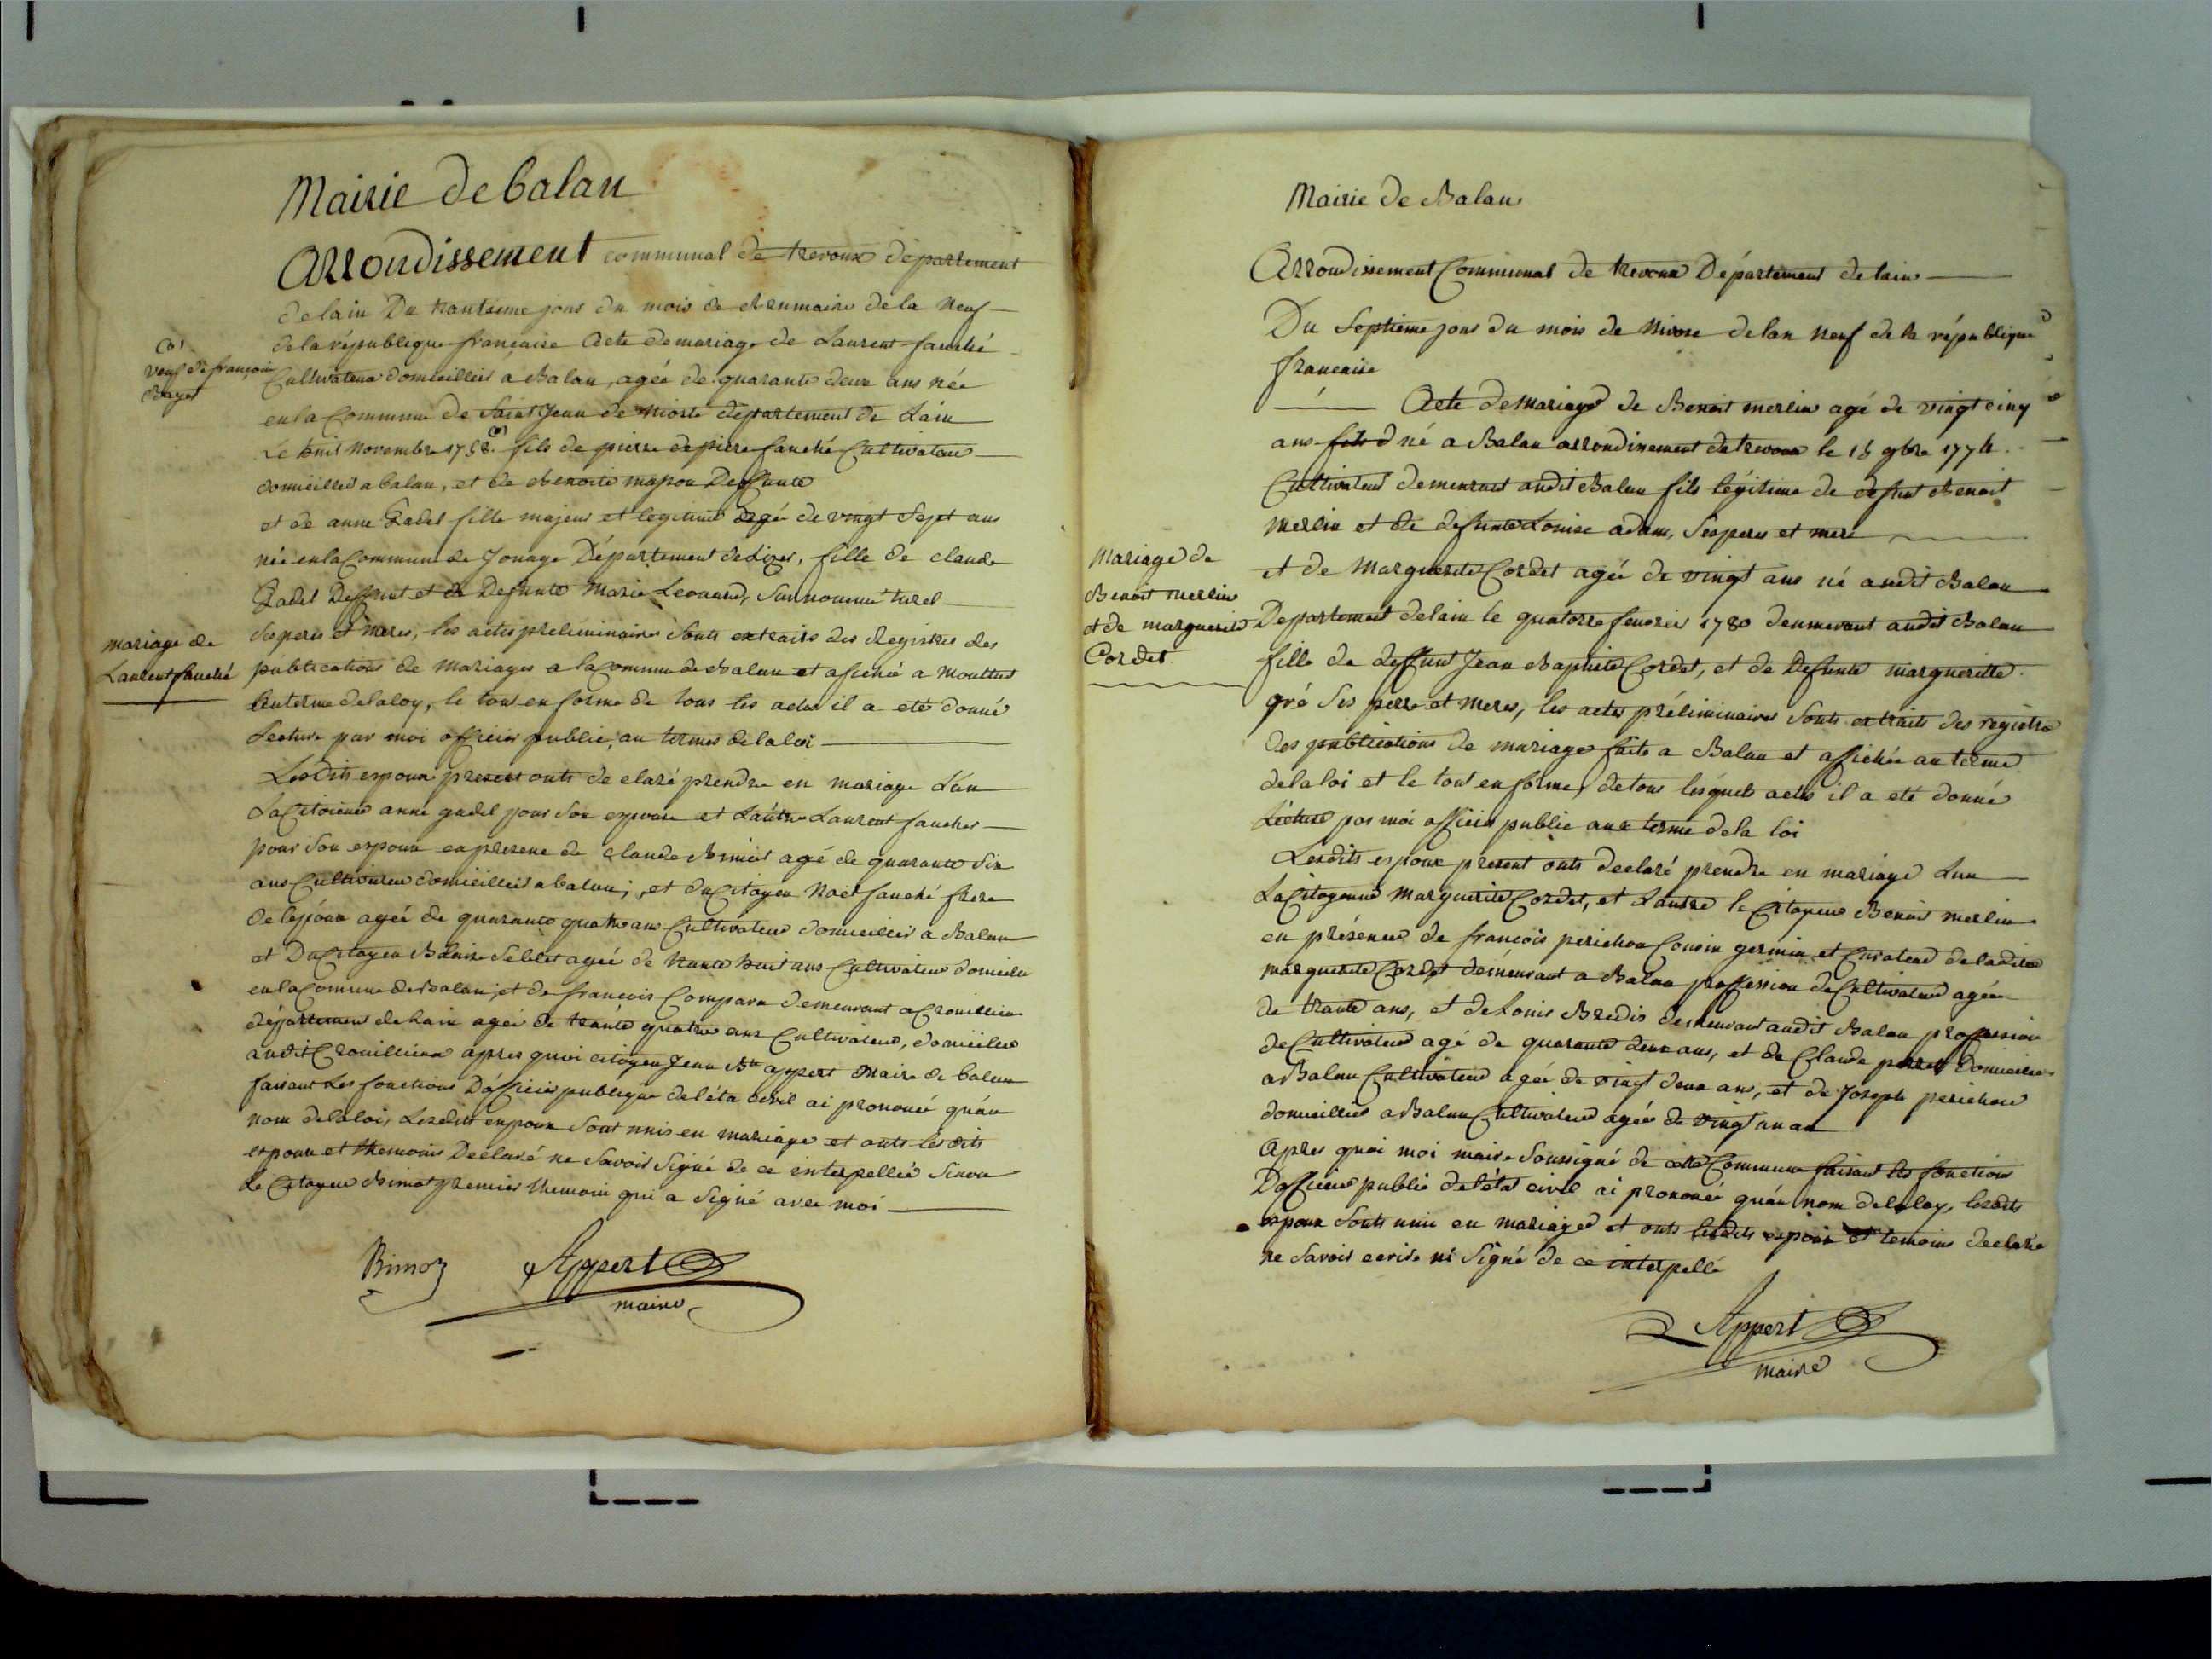 Mairie de balan
Arrondissement communal de trevoux departement
de lain Du trantieme jour du mois de brumaire de la neuf
de la république française Acte de mariage de Laurent fauché
(a)
veuf de françoise
Bayet
Cultivateur domicillié a Balan, agée de quarante deux ans née
en la Commune de Saint Jean de Nioste département de Lain
Le huit novembre 1758 (a) fils de pierre de pierre fauché Cultivateur
domicillié a balan, et de benoite mapou Deffunte
et de anne Gadel fille majeur et legitime agée de vingt Sept ans
née en la Commune de Jonage Département de Lizer, fille de claude
Gadel Deffunt et de Defunte Marie Leonard, Surnommé turel
Mariage de
Laurent fauché
Ses peres et meres, les actes preliminaires Sonts extraits des Registres des
publications de Mariages a la Commune de Balan et afiché a
terme de la loy, le tout en forme de tous les actes il a eté donné
Lecture par moi officier public, au termes de la loi
Lesdits espoux present onts declaré prendre en mariage L'un
La Citoienne anne gadel pour Son expouse et Lautre Laurent faucher
pour Son espoux en presence de claude Bimot agé de quarante Six
ans Cultivateur domicillié a balan; et du Citoyen Noel fauché frere
de lepoux agée de quarante quatre ans Cultivateur domicillié a Balan
et Du Citoyen Blaise Seblet agée de trante huit ans Cultivateur domicilié
en la Comune de Balan, et de francois Compara demeurant a Crouillieu
département de Lain agée de trante quatre ans Cultivateur, domicilié
audit Crouillieux apres quoi citoyen Jean Bte appert Maire de balan
faisant Les fonctions D'officier publique de l'éta civil ai prononcé qu'au
nom de la loi, Lesdits enpoux Sont unis en mariage et onts lesdits
espoux et themoins Declaré ne Savoir Signé de ce interpellié Sinon
Le Citoyen Bimot premier themoin qui a Signé avec moi
Bimoz Appert
maire
Mairie de Balan
Arrondissement Communal de trevoux Département de lain
Du Septieme jour du mois de Nivose de lan neuf de la république
francaise
Acte de Mariage de Benoit merlin agé de vingt cinq
ans fils d né a Balan arrondissement de trevoux le 15 9bre 1774
Cultivateur demeurant audit Balan fils légitime de defunt Benoit
Merlin et de defunte Louise adam, Ses peres et mere
Mariage de
Benoit Merlin
et de marguerite
Cordet.
et de Marguerite Cordet agée de vingt ans né audit Balan
Departement de lain le quatorze fevrier 1780 demeurant audit Balan
fille de deffunt Jean Baptiste Cordet, et de Defunte margueritte
gré Ses pere et meres, les actes préliminaires Sonts extraits des registre
des publications de mariage faite a Balan et affichée au terme
de la loi et le tout en forme, de tous lesquels actes il a eté donné
Lecture par moi officier public aux terme de la loi
Lesdits espoux present onts declaré prendre en mariage Lun
La Citoyenne Marguerite Cordet, et Lautre le Citoyen Benoit merlin
en présence de francois perichon Cousin germin et Curateur de ladite
marguerite Cordet demeurant a Balan proffession de Cultivateur agée
de trante ans, et de Louis Bredis demeurant audit Balan proffession
de Cultivateur agé de quarante deux ans, et de Claude perret Domicilié
a Balan Cultivateur agée de vingt deux ans, et de Joseph perichon
domicillié a Balan Cultivateur agée de vingt an an
Apres quoi moi maire Soussigné de cette Commune faisant les fonctions
D'officier public de l'état civil ai prononcé qu'au nom de la loy, lesdits
espoux Sonts unis en mariage et onts lesdits espoux et temoins declaré
ne Savoir ecrire ni Signé de ce interpellé
Appert
maire